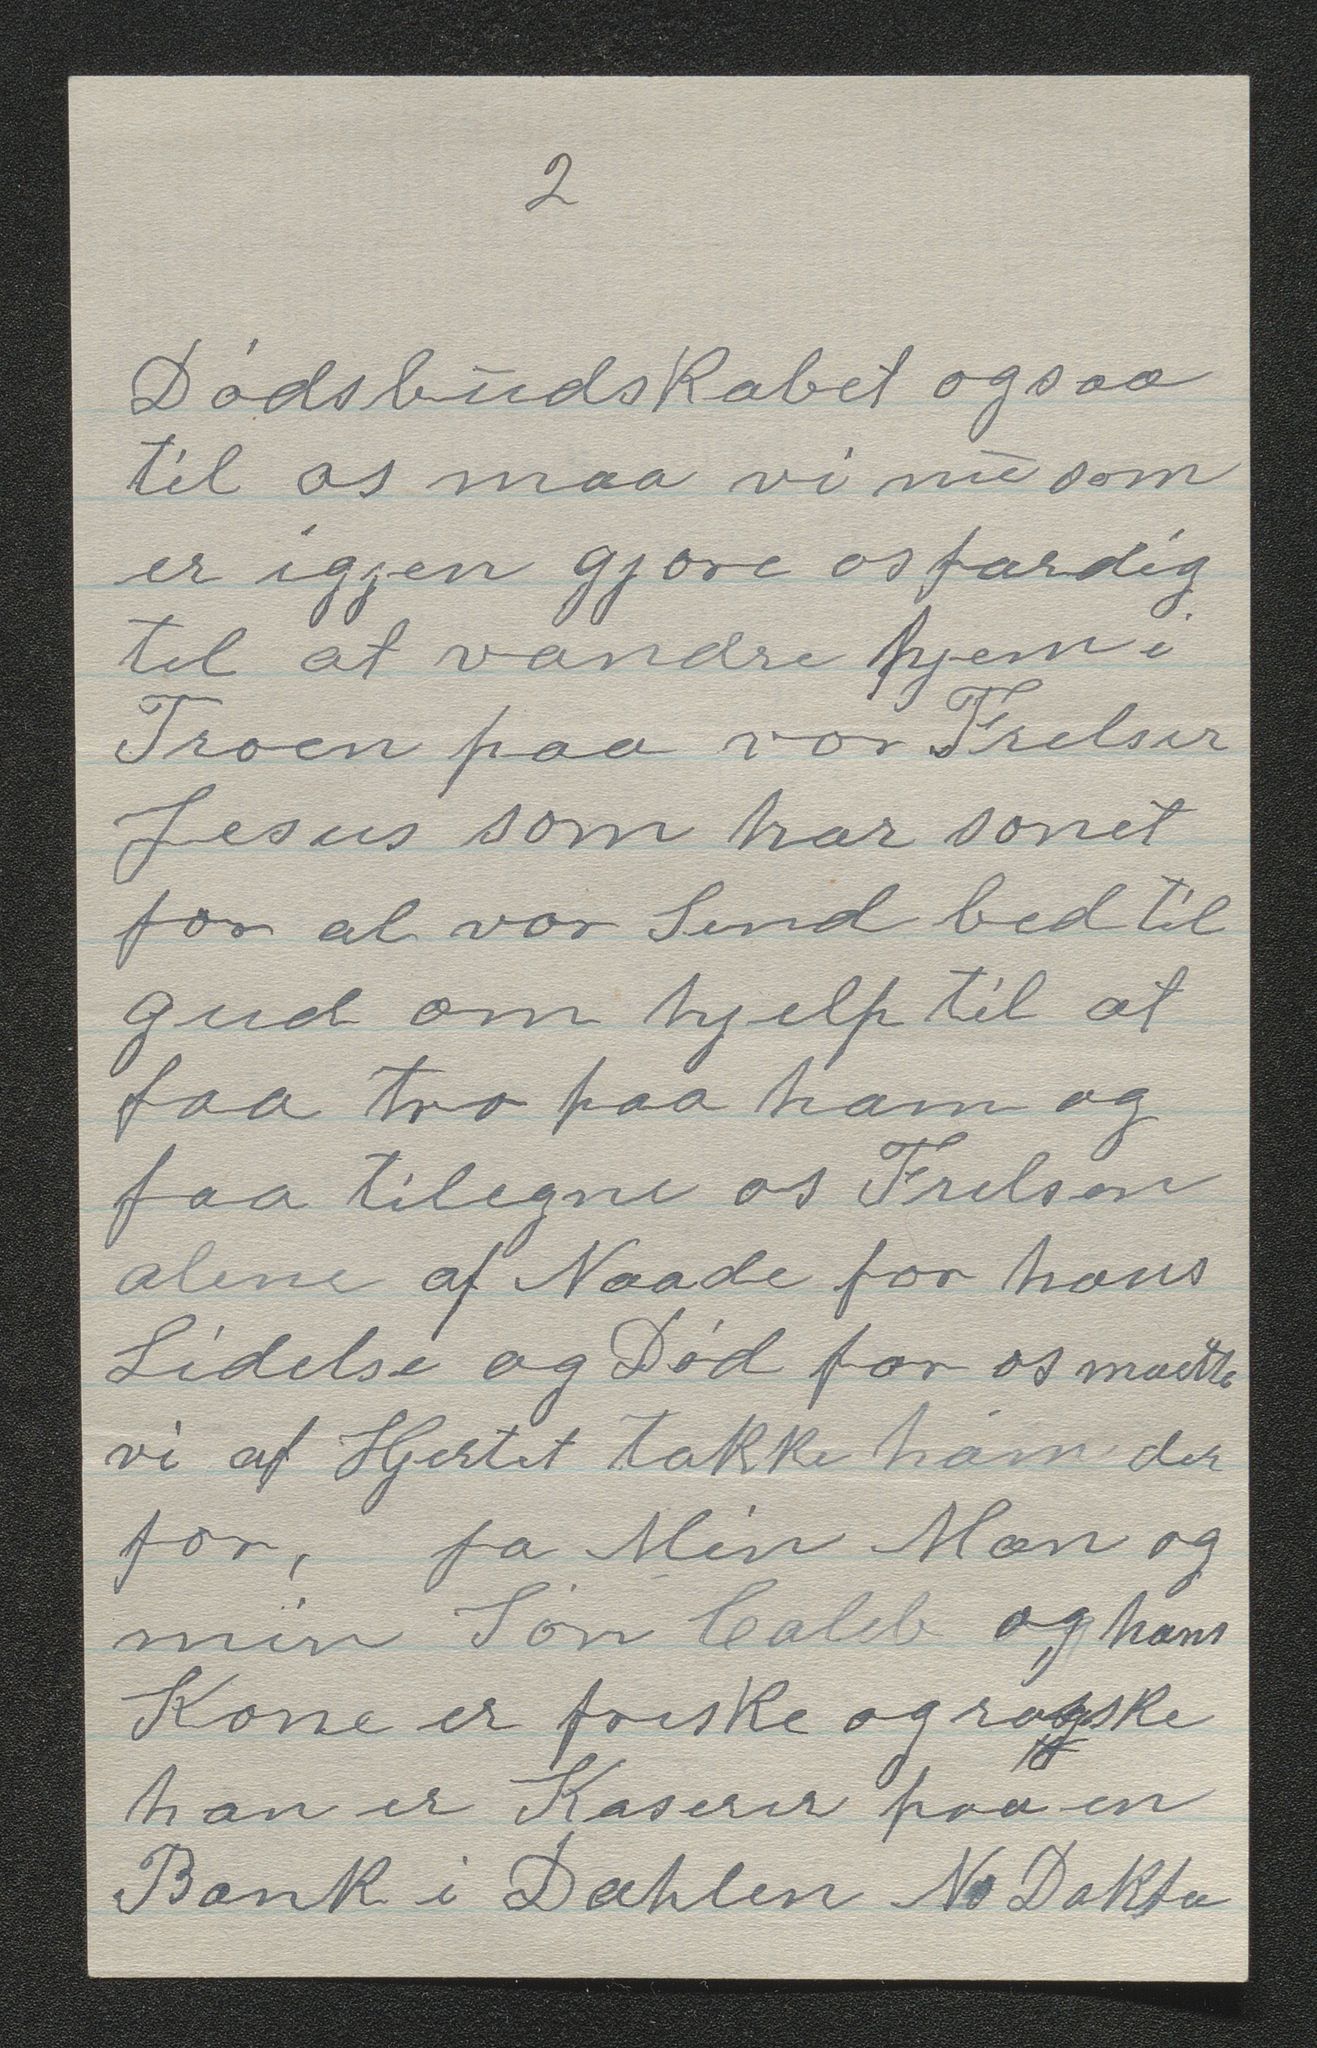 2
Dødsbudskabet ogsaa
til os maa vi nu som
er igjen gjøre os færdig
til at vandre hjem i
Troen paa vor Frelser
Jesus som har sonet
for al vor Sind bed til
gud om hjelp til at
faa tro paa ham og
faa tilegne os Frelsen
alene af Naade for hans
Lidelse og Død for os maatte
vi af Hjertet takke ham der
for, ja Min Man og
min Søn Caleb og hans
Kone er friske og raske
han er Kaserer paa en
Bank i Dahlen No Dakta